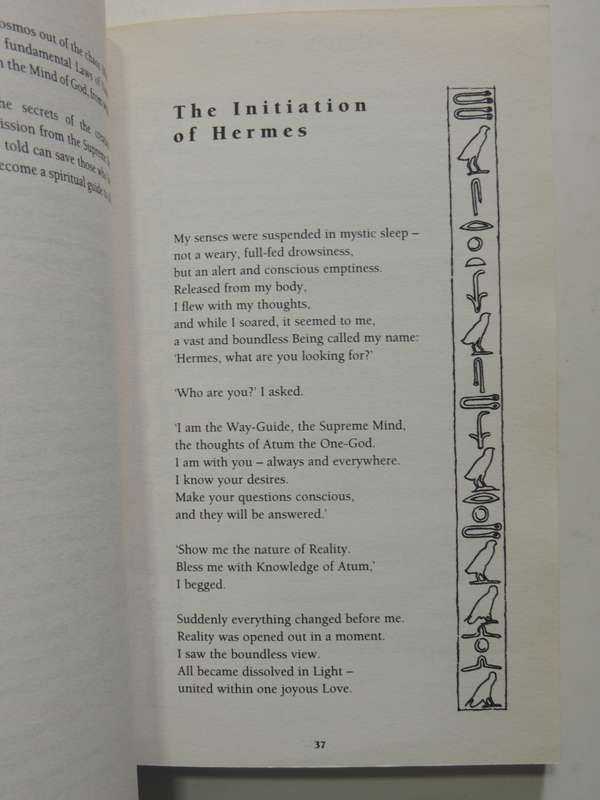 osmos out of the chaos
fundamental Laws of
the Mind of God, from
he secrets of the
ission from the Supreme
told can save those who
ecome a spiritual guide to
The Initiation
of Hermes
My senses were suspended in mystic sleep –
not a weary, full-fed drowsiness,
but an alert and conscious emptiness.
Released from my body,
I flew with my thoughts,
and while I soared, it seemed to me,
a vast and boundless Being called my name:
‘Hermes, what are you looking for?’
‘Who are you?’ I asked.
‘I am the Way-Guide, the Supreme Mind,
the thoughts of Atum the One-God.
I am with you – always and everywhere.
I know your desires.
Make your questions conscious,
and they will be answered.’
‘Show me the nature of Reality.
Bless me with Knowledge of Atum,’
I begged.
Suddenly everything changed before me.
Reality was opened out in a moment.
I saw the boundless view.
All became dissolved in Light –
united within one joyous Love.
37